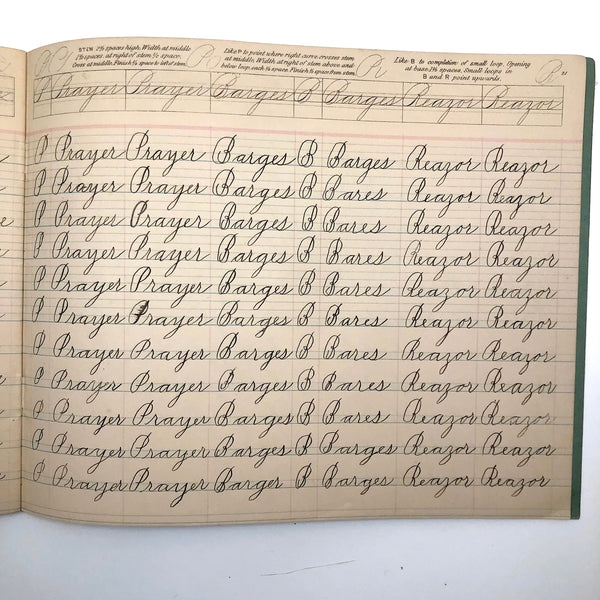 STEM 2⅔ spaces high. Width at middle
1⅓ spaces, at right of stem ⅔ space.
Cross at middle. Finish ⅓ space to left of stem.
Like P to point where right curve crosses stem
at middle. Width at right of stem above and
below loop, each ⅔ space. Finish ⅓ space from stem.
Like B to completion of small loop. Opening
at base 1⅓ spaces. Small loops in
B and R point upwards.
P R R 21
P Prayer Prayer Barges B Barges Reazor Reazor
P Prayer Prayer Barges B Barges Reazor Reazor
P Prayer Prayer Barges B Bares Reazor Reazor
P Prayer Prayer Barges B Bares Reazor Reazor
P Prayer Prayer Barges B Bares Reazor Reazor
P Prayer Prayer Barges B Bares Reazor Reazor
P Prayer Prayer Barges B Bares Reazor Reazor
P Prayer Prayer Barges B Bares Reazor Reazor
P Prayer Prayer Barges B Bares Reazor Reazor
P Prayer Prayer Barges B Bares Reazor Reazor
P Prayer Prayer Barges B Barges Reazor Reazor
P Prayer Prayer Barger B Barges Reazor Reazor